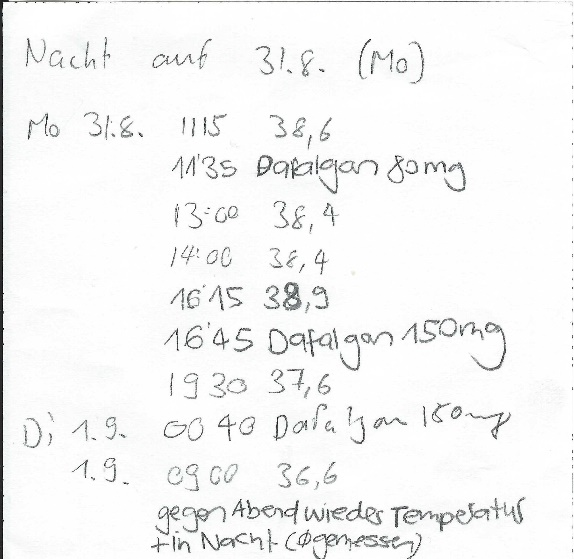 Nacht auf 31.8. (Mo)
Mo 31.8. 1115 38,6
11'35 Dafalgan 80mg
13:00 38,4
14:00 38,4
16'15 38,9
16'45 Dafalgan 150mg
1930 37,6
Di 1.9. 0040 Dafalgan 150mg
1.9. 0900 36,6
gegen Abend wieder Temperatur
+ in Nacht (Ø gemessen)